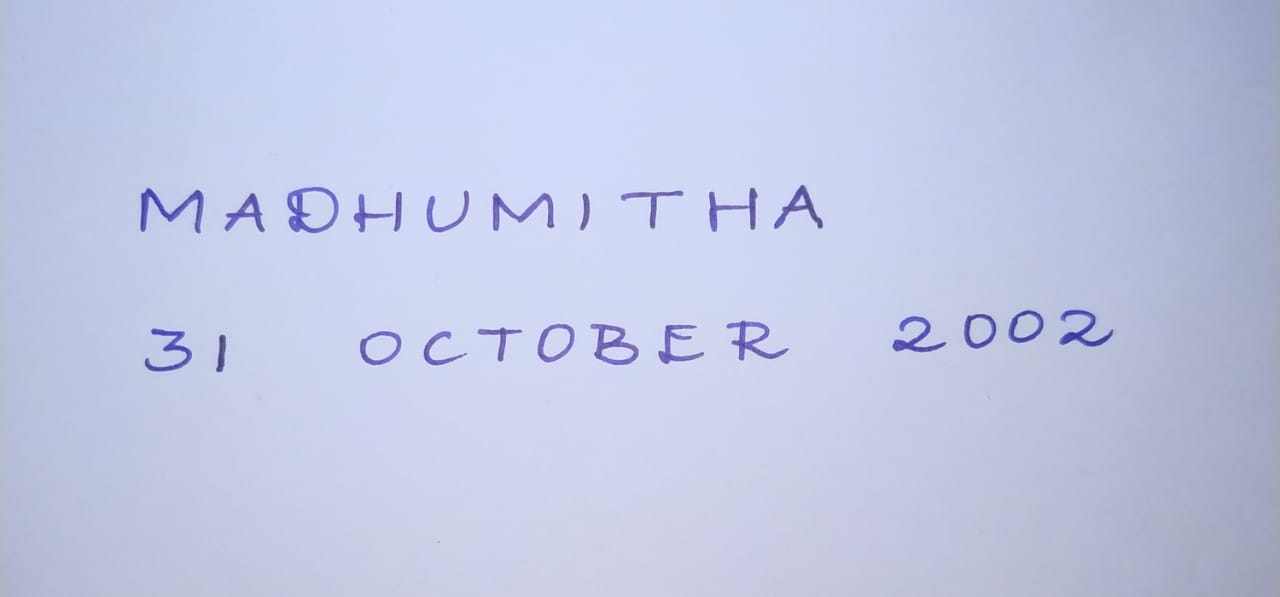 MADHUMITHA
31 OCTOBER 2002